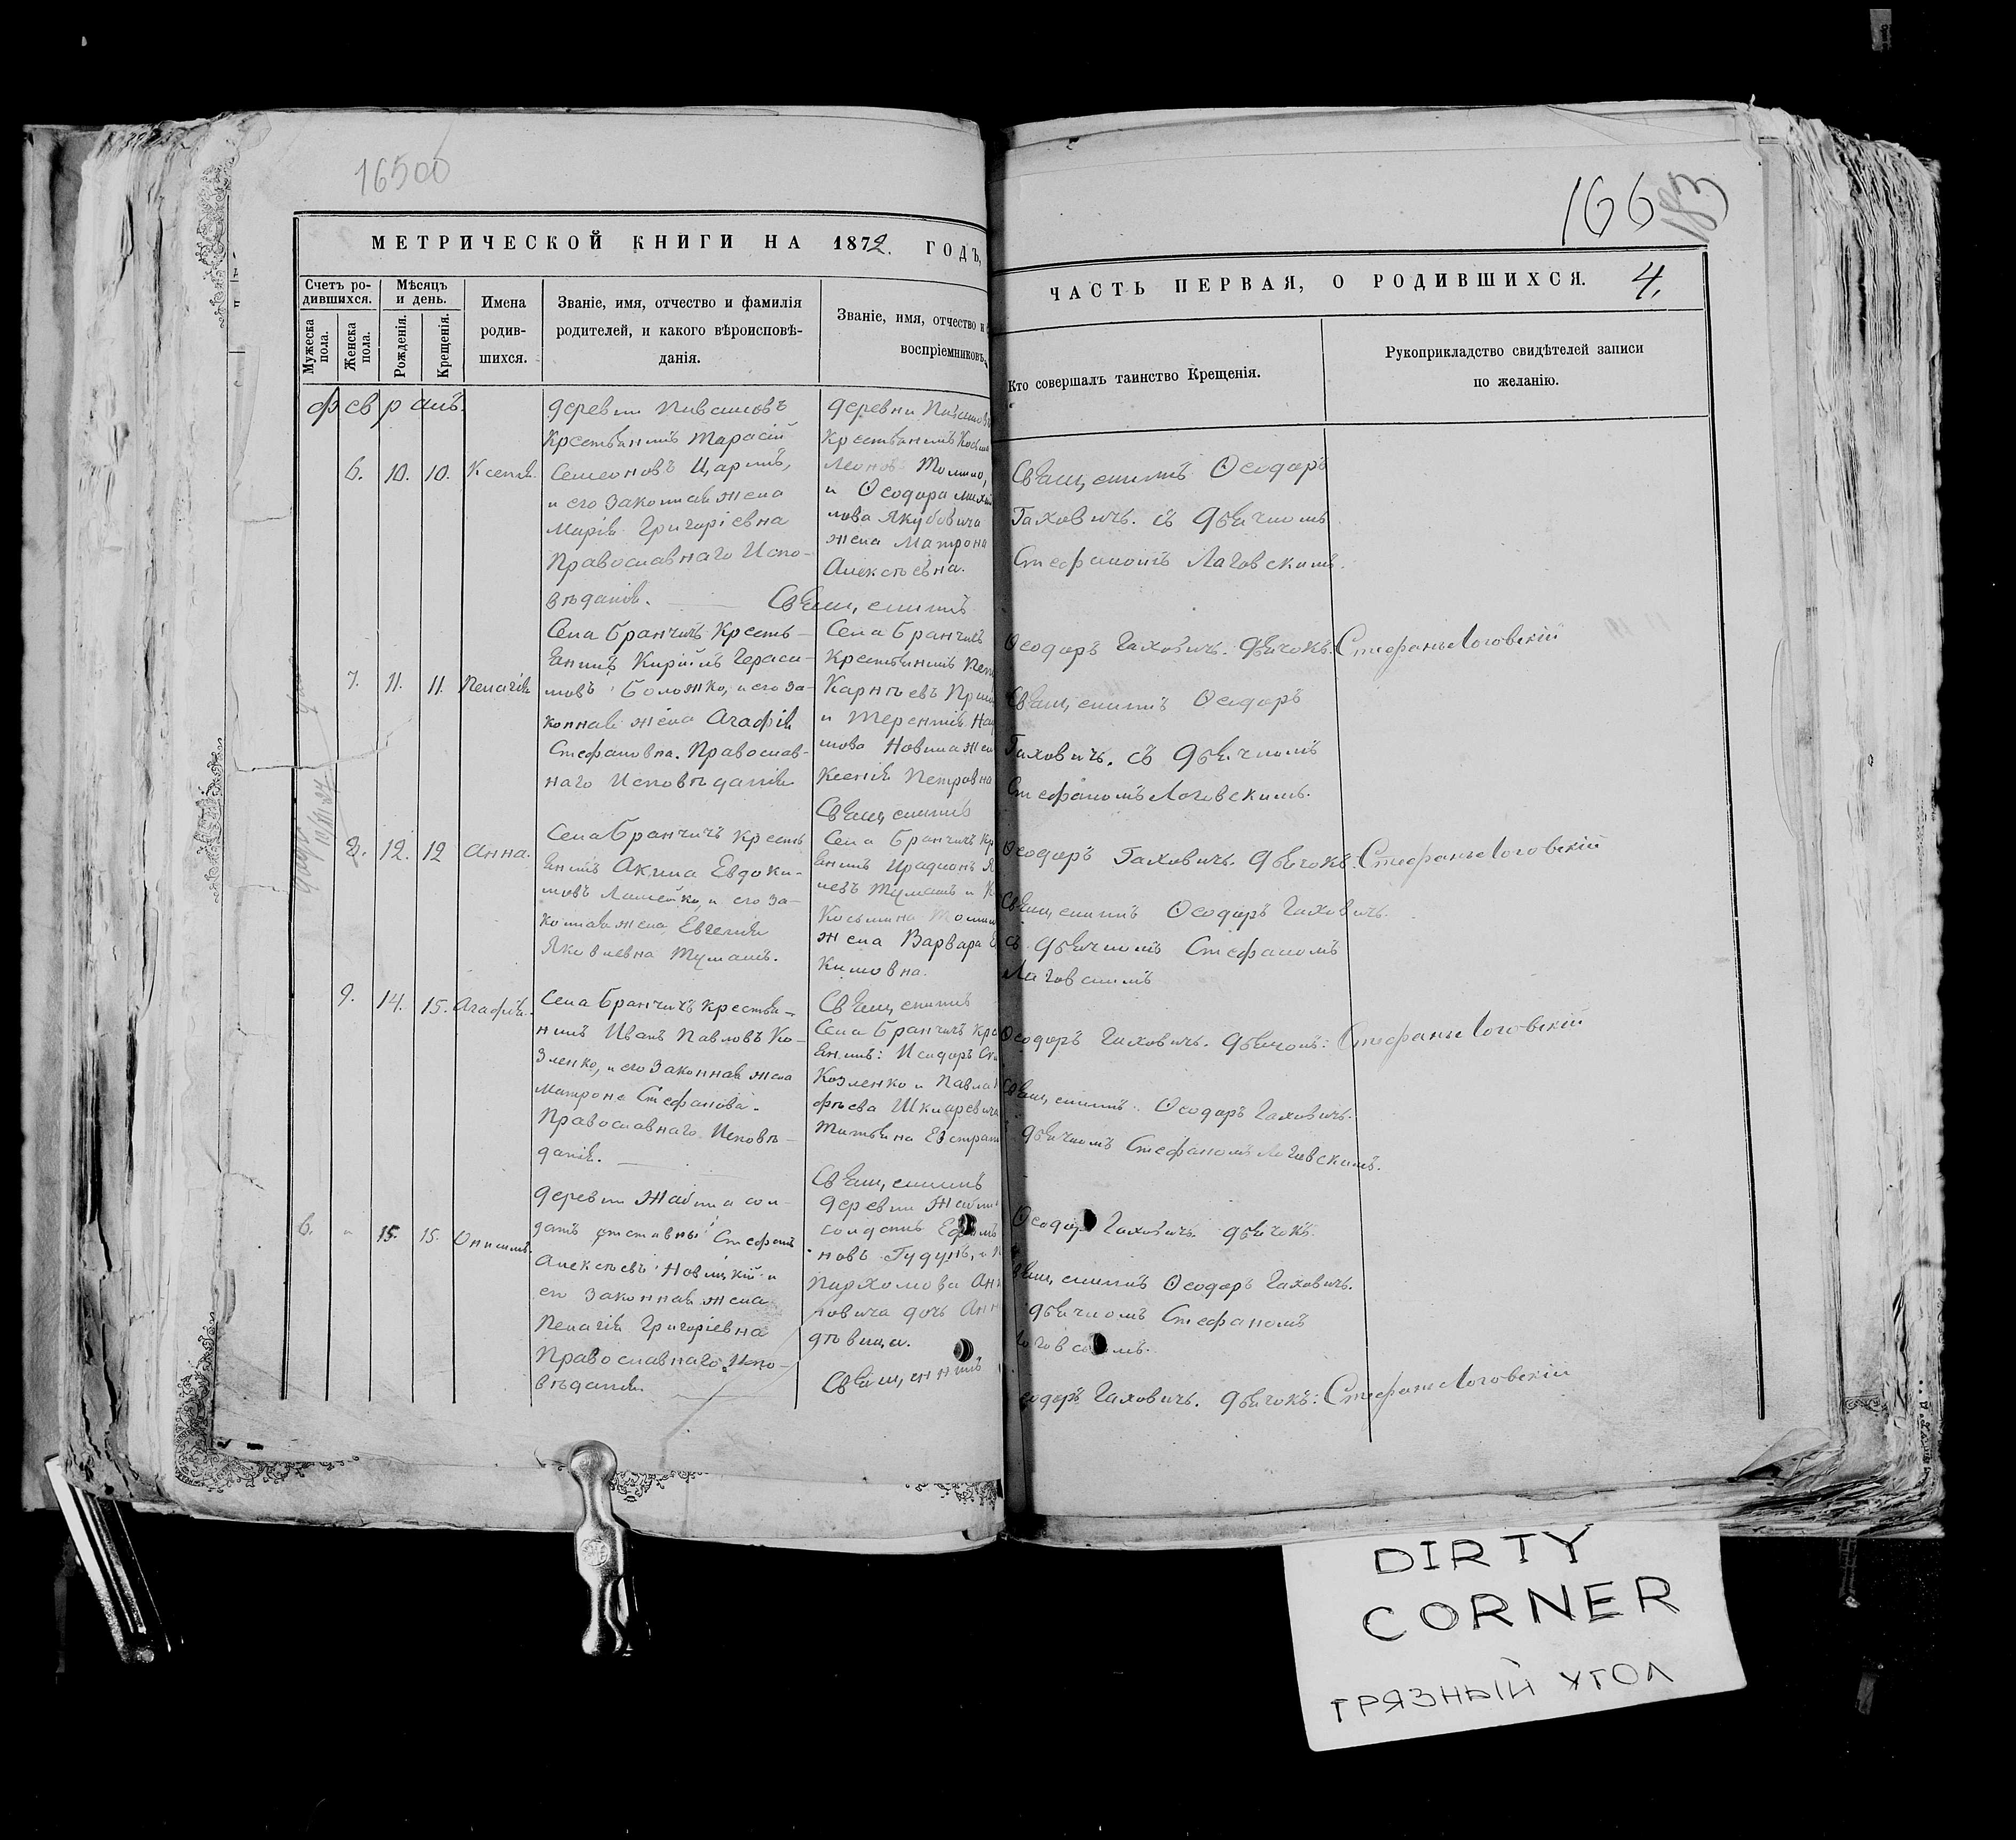 16500
МЕТРИЧЕСКОЙ КНИГИ НА 1872. ГОДЪ,
Счетъ ро-
дившихся.
Мужеска
пола.
Женска
пола.
Мѣсяцъ
и день.
Рожденія.
Крещенія.
Имена
родив-
шихся.
Званіе, имя, отчество и фамилія
родителей, и какого вѣроисповѣ-
данія.
Званіе, имя, отчество и
воспріемниковъ.
Февраль.
6. 10. 10. Ксенія.
деревни
Крестьянинъ Тарасій
Семеоновъ Царикъ,
и его законная жена
Марія Григоріевна
Православнаго Испо-
вѣданія.
деревни
Крестьянинъ
Томило,
и Ѳеодора
лова Якубовича
жена Матрона
Алексѣевна.
Священникъ
7. 11. 11. Пелагія
Села Бранчичъ Кресть-
янинъ Кирилъ Гераси-
мовъ Боложко, и его за-
конная жена Агафія
Стефановна. Православ-
наго Исповѣданія
Села Бранчичъ
Крестьянинъ
Карнѣевъ
и Терентія
жен
Ксенія Петровна
Священникъ
8. 12. 12 Анна.
Села Бранчичъ Кресть
янинъ Акила Евдоки-
мовъ и его за-
конная жена Евгенія
Яковлевна Туманъ.
Села Бранчичъ Кр
янинъ Ирадионъ Я
левъ Туманъ и К
Косьмина
жена Варвара
кимовна.
Священникъ
9. 14. 15. Агафія.
Села Бранчичъ крестья-
нинъ Иванъ Павловъ Ко-
зленко, и его Законная жена
Матрона Стефанова.
Православнаго Исповѣ-
данія.
Села Бранчичъ Кре
янинъ: Исидоръ
Козленко и Павла
фѣева Шкляревича
Татьяна Евстрат
Священникъ
6. " 15. 15. Онисимъ.
деревни сол-
датъ отставный Стефанъ
Алексѣевъ Новицкій и
его законная жена
Пелагія Григоріевна
Православнаго Испо-
вѣданія.
деревни
солдатъ
новъ Гудунъ, и
Пархомова
новича дочь Анн
дѣвица.
Священникъ
166
183
ЧАСТЬ ПЕРВАЯ, О РОДИВШИХСЯ. 4.
Кто совершалъ таинство Крещенія.
Рукоприкладство свидѣтелей записи
по желанію.
Священникъ Ѳеодоръ
Гаховичъ. съ дьячкомъ
Стефаномъ Лаговскимъ.
Ѳеодоръ Гаховичъ. дьячокъ: Стефанъ Логовскій
Священникъ Ѳеодоръ
Гаховичъ. съ дьячкомъ
Стефаномъ Логовскимъ.
Ѳеодоръ Гаховичъ. дьячокъ: Стефанъ Логовскій
Священникъ Ѳеодоръ Гаховичъ.
съ дьячкомъ Стефаномъ
Лаговскимъ
Ѳеодоръ Гаховичъ. дьячокъ: Стефанъ Логовскій
Священникъ Ѳеодоръ Гаховичъ.
дьячкомъ Стефаномъ Логовскимъ.
Ѳеодоръ Гаховичъ. дьячокъ.
Священникъ Ѳеодоръ Гаховичъ.
дьячкомъ Стефаномъ
еодоръ Гаховичъ. дьячокъ: Стефанъ Логовскій
DIRTY
CORNER
ГРЯЗНЫЙ УГОЛ